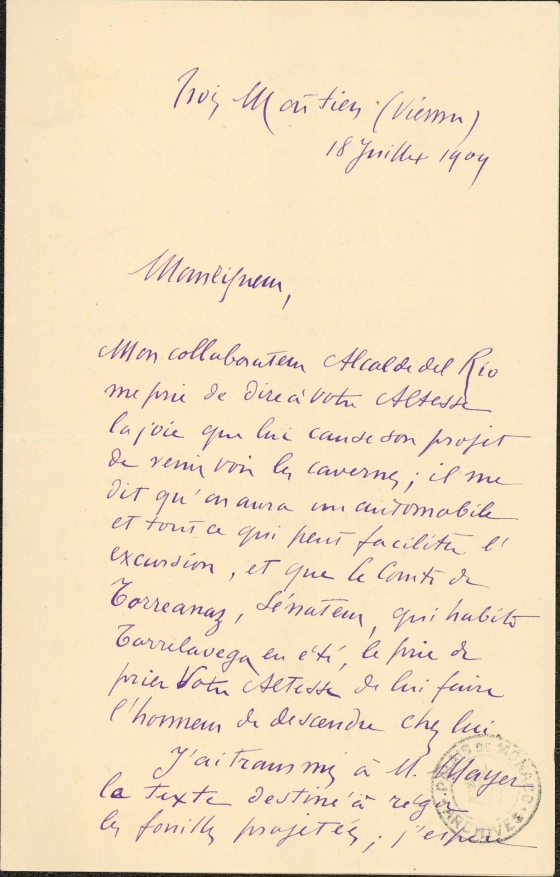 Trois Moûtiers (Vienne)
18 Juillet 1909
Monseigneur,
Mon collaborateur Alcalde del Rio
me prie de dire à Votre Altesse
la joie que lui cause son projet
de venir voir les cavernes ; il me
dit qu'on aura un automobile
et tout ce qui peut faciliter l'
excursion, et que le Comte de
Torreanaz, Sénateur, qui habite
Torrelavega en été, le prie de
prier Votre Altesse de lui faire
l'honneur de descendre chez lui.
J'ai transmis à M. Mayer
le texte destiné à régler
les fouilles projetées ; j'espère
PALAIS DE MONACO
ARCHIVES